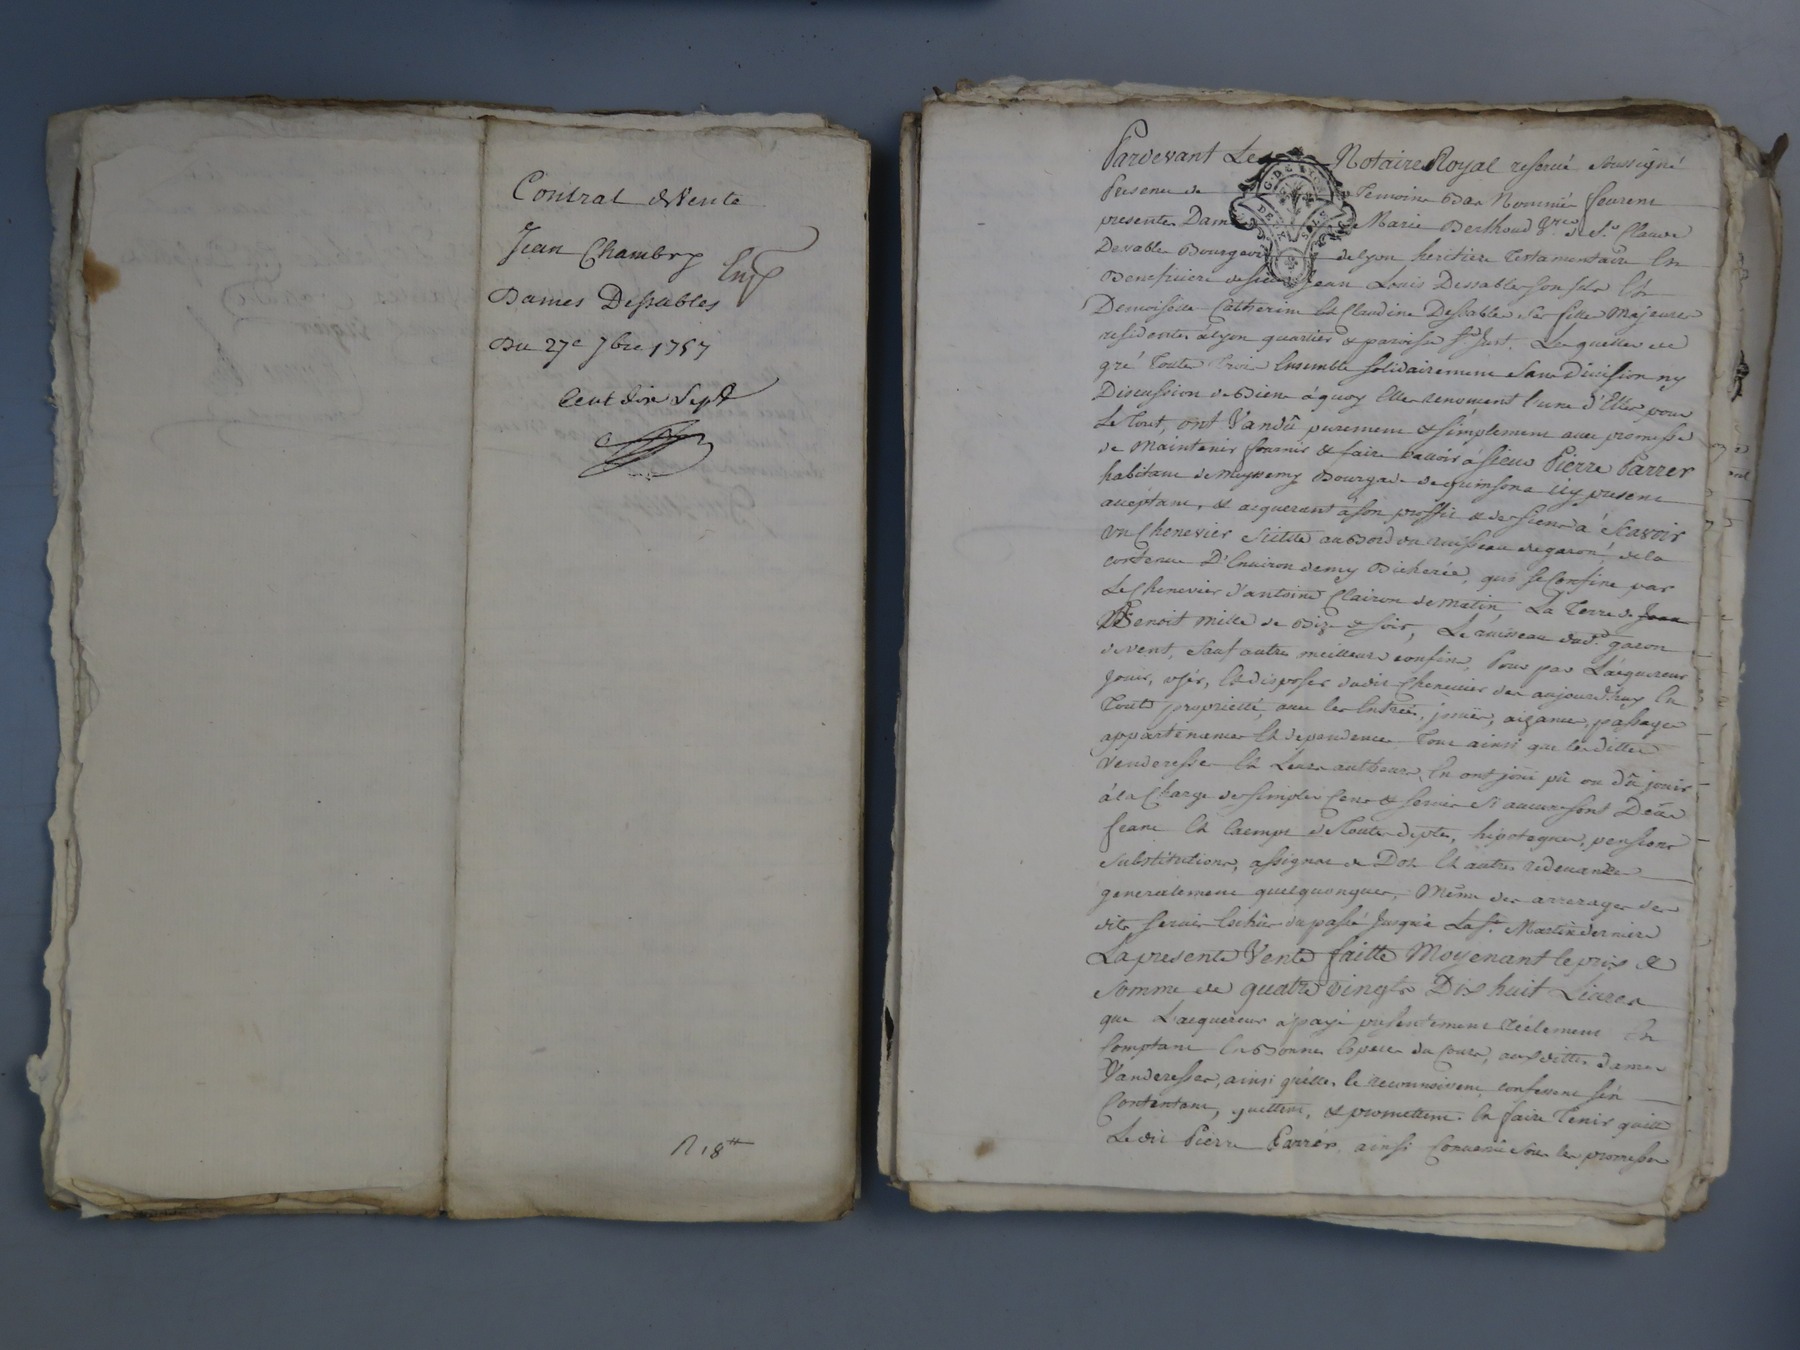 Contrat de Vente
Jean Chambry
Dames Dessables
Du 27e 7bre 1757
Cent dix Sept
118#
Pardevant Le Notaire Royal reservé soussigné
Presence de Temoins Bas Nommés furent
presente Dame Marie Berthoud Vve de Sr Claude
Desable Bourgeois de lyon heritiere Testamentaire En
Beneficiere de sieur Jean Louis Dessables son fils Et
Demoiselle Catherine Et Claudine Dessables ses filles Majeures
residentes à lyon quartier & paroisse St Just. Lesquelles de
gré Toutes trois Ensemble solidairement sans division ny
Discussion de Biens à quoy Elles renoncent l'une d'Elles pour
Le Tout, ont Vandû purement & simplement avec promesse
de Maintenir fournir & faire valloir à sieur Pierre Parrer
habitant de Bourg de icy present
acceptant, & acquerant à son proffit & des siens à Scavoir
Un Chenevier Scitué au Bord du ruisseau de garon, de la
contenue D'Environ demy Bicherée, qui se Confine par
Le Chenevier d'antoine Clairon de matin, La Terre de Jean
Benoit mille de Bize & soir, Le ruisseau dud. garon
de vent, Sauf autres meilleurs confins, Pour par L'acquereur
Jouir, user, Et disposer dudit Chenevier des aujourd'huy En
Toute proprieté, avec les Entrées, aizances, passages
appartenances Et dependences Tout ainsi que lesdittes
Venderesses Et Leurs autheurs En ont joüi pû ou dû jouir
à la Charge des simples Cens & servis Si aucuns sont Dûs
franc Et Exempt de Toutes dettes, hipoteques, pensions
Substitutions, assignat de Dot Et autres redevances
generalement quelquonques, Même des arrerages des
dits servis Echûs du passé Jusqu'à La St Martin derniere
La presente Vente faitte Moyenant le prix &
Somme de quatre vingts Dix huit Livres
que L'acquereur à payé presentement réelement Et
Comptant En Bonnes Especes du Cours, auxdittes dames
Vanderesses, ainsi qu'elles le reconnoissent, confessent s'en
Contentent, quittent, & promettent En faire Tenir quitte
Le dit Pierre Parrer, ainsi Convenû sous les promesses